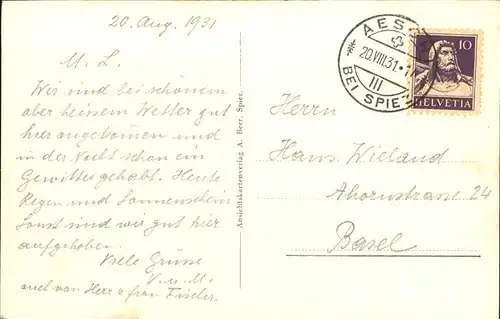 20. Aug. 1931
M. L.
Wir sind bei schönem
aber heissem Wetter gut
hier angekommen und
in der Nacht schon ein
Gewitter gehabt. Heute
Regen und Sonnenschein
Sonst sind wir gut hier
aufgehoben.
Viele Grüsse
V. u. M.
auch von Herr & frau Fischer.
Ansichtskartenverlag A. Beer, Spiez.
AES
20.VIII.31.-1
III
BEI SPIEZ
10
HELVETIA
Herrn
Hans Wieland
Ahornstrasse 24
Basel